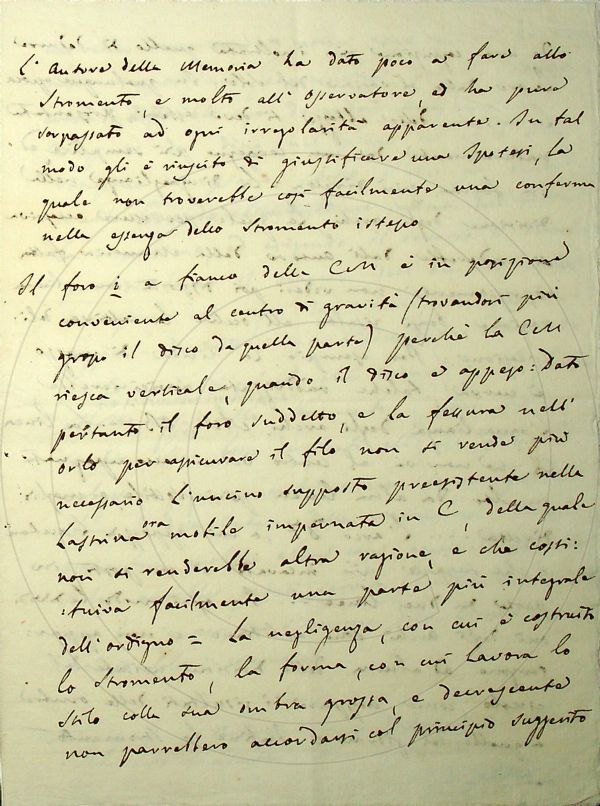 L'Autore della Memoria ha dato poco a fare allo
Stromento, e molto all'Osservatore, ed ha pure
sorpassato ad ogni irregolarità apparente. In tal
modo gli è riuscito di giustificare una Ipotesi, la
quale non troverebbe così facilmente una conferma
nella essenza dello Stromento istesso
Il foro i a fianco della CM è in posizione
conveniente al centro di gravità (trovandosi più
grosso il disco da quella parte) perchè la CM
riesca verticale, quando il disco è appeso: Dato
pertanto il foro suddetto, e la fessura nell'
orlo per assicurare il filo non si rende più
necessario l'uncino supposto preesistente nella
Lastrina ora mobile impernata in C, della quale
non si renderebbe altra ragione, e che costi:
:tuiva facilmente una parte più integrale
dell'ordigno = La negligenza, con cui è costruito
lo Stromento, la forma, con cui lavora lo
stilo colla sua ombra grossa, e decrescente
non parrebbero accordarsi col principio suggerito